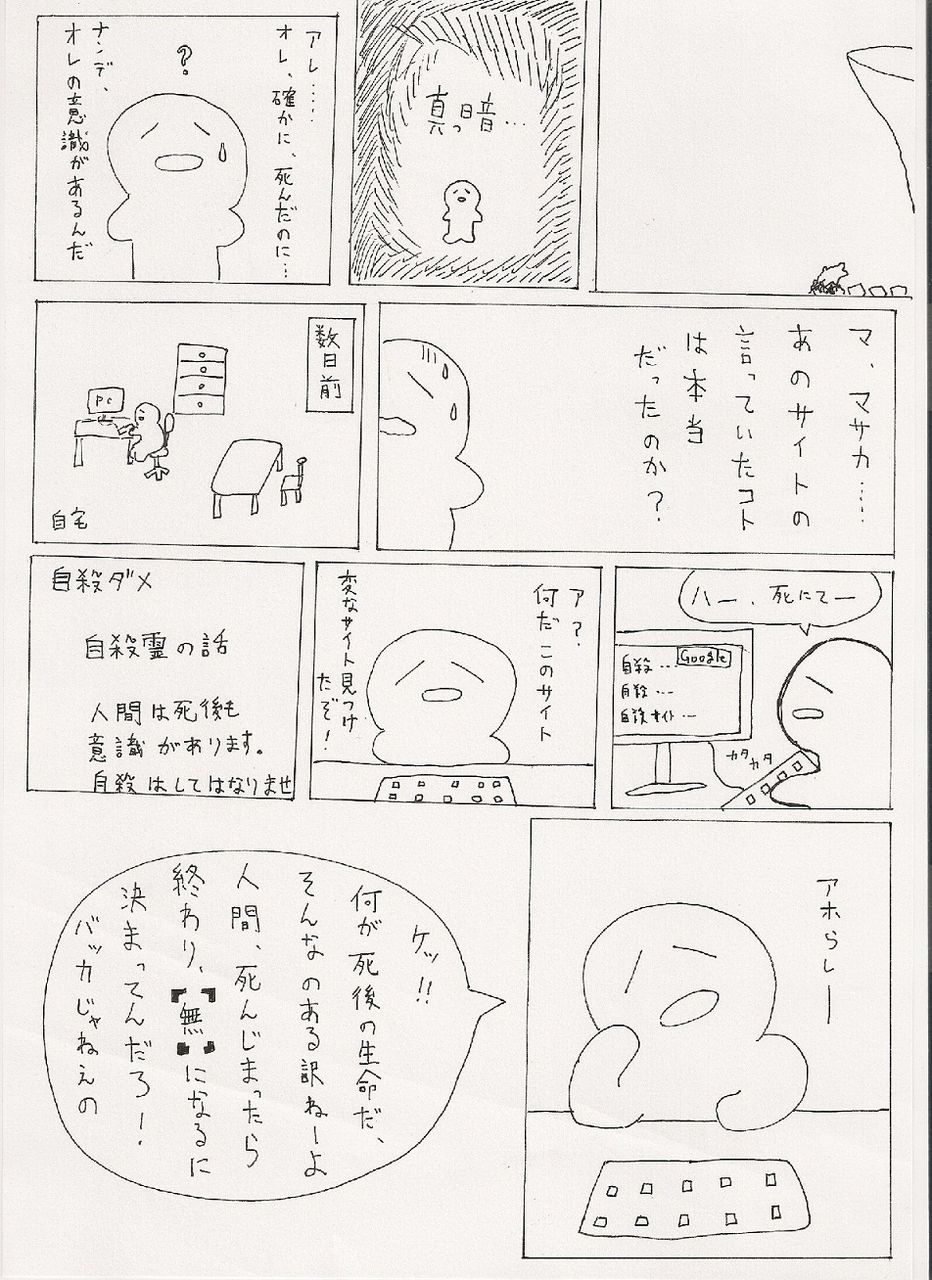 真っ暗…
アレ……
オレ、確かに、死んだのに…
?
ナンデ、
オレの意識があるんだ
マ、マサカ……
あのサイトの
言っていたコト
は本当
だったのか?
数日前
PC
自宅
ハー、死にてー
Google
自殺…
自殺…
自殺サイト…
カタカタ
ア?
何だこのサイト
変なサイト見つけ
たぞ!
自殺ダメ
自殺霊の話
人間は死後も
意識があります。
自殺はしてはなりませ
アホらしー
ケッ!!
何が死後の生命だ、
そんなのある訳ねーよ
人間、死んじまったら
終わり、「無」になるに
決まってんだろ!
バッカじゃねぇの